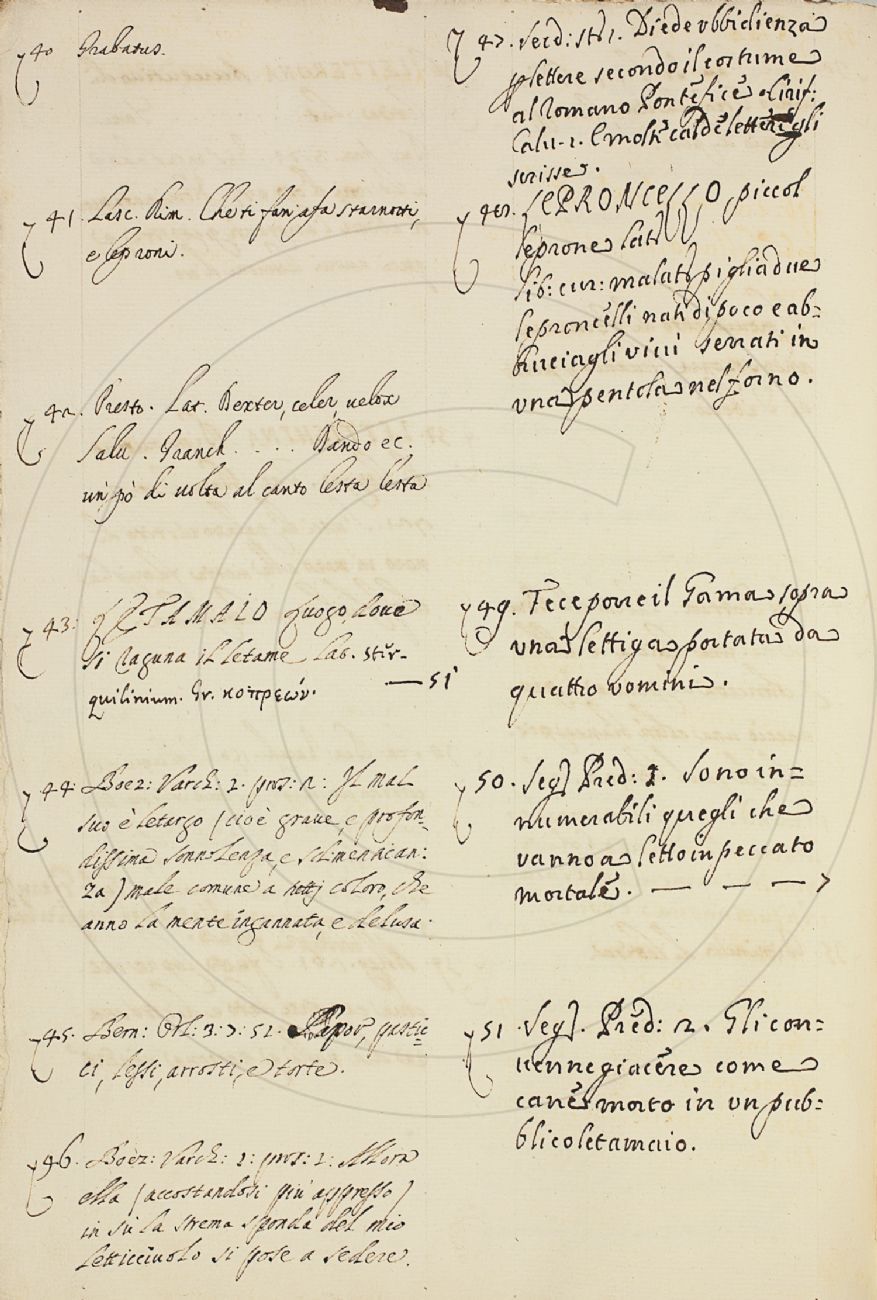 40 Grabatus.
41. Lasc. Rim. Che ti fan
e leproni.
42. Presto. Lat. Dexter, celer, velox
Salv. Granch. . . . . Bando ec.
un pò di volta al canto lesta lesta
43. LETAMAIO Luogo, dove
si raguna il letame Lat. ster-
quilinium. Gr. κοπρεών. — 51
44. Boez: Varch: 1. pros: 2: Il mal
suo è letargo (cioè grave, e profon-
dissima sonnolenza, e
za) male comune a tutti coloro, che
anno la mente ingannata, e delusa.
45. Bern: Orl: 3: 7: 51. Lepor, pastic=
ci, lessi, arrosti, e torte.
46. Boez: Varch: 1: pros: 1: Allora
ella (accostandosi più appresso)
in su la strema sponda del mio
letticciuolo si pose a sedere.
47. Serd: st: 1. Diede vbbidienza
p lettere secondo il costume
al Romano Pontefice
Calv. 1. E molte calde lettere gli
scrisse.
48. LEPRONCELLO piccol
leprone Lat.
Lib: cur: malatt. piglia due
leproncelli nati di poco e ab=
bruciagli vivi serrati in
vna pentola nel forno.
49. Fece porre il Gama sopra
vna lettiga portata da
quattro vomini.
50. Seg. Pred: 1. Sono in=
numerabili quegli che
vanno a letto in peccato
mortale. — — — 7
51 Seg. Pred: 2. Gli con:
uenne giacere come
cane morto in vn pub:
blico letamaio.